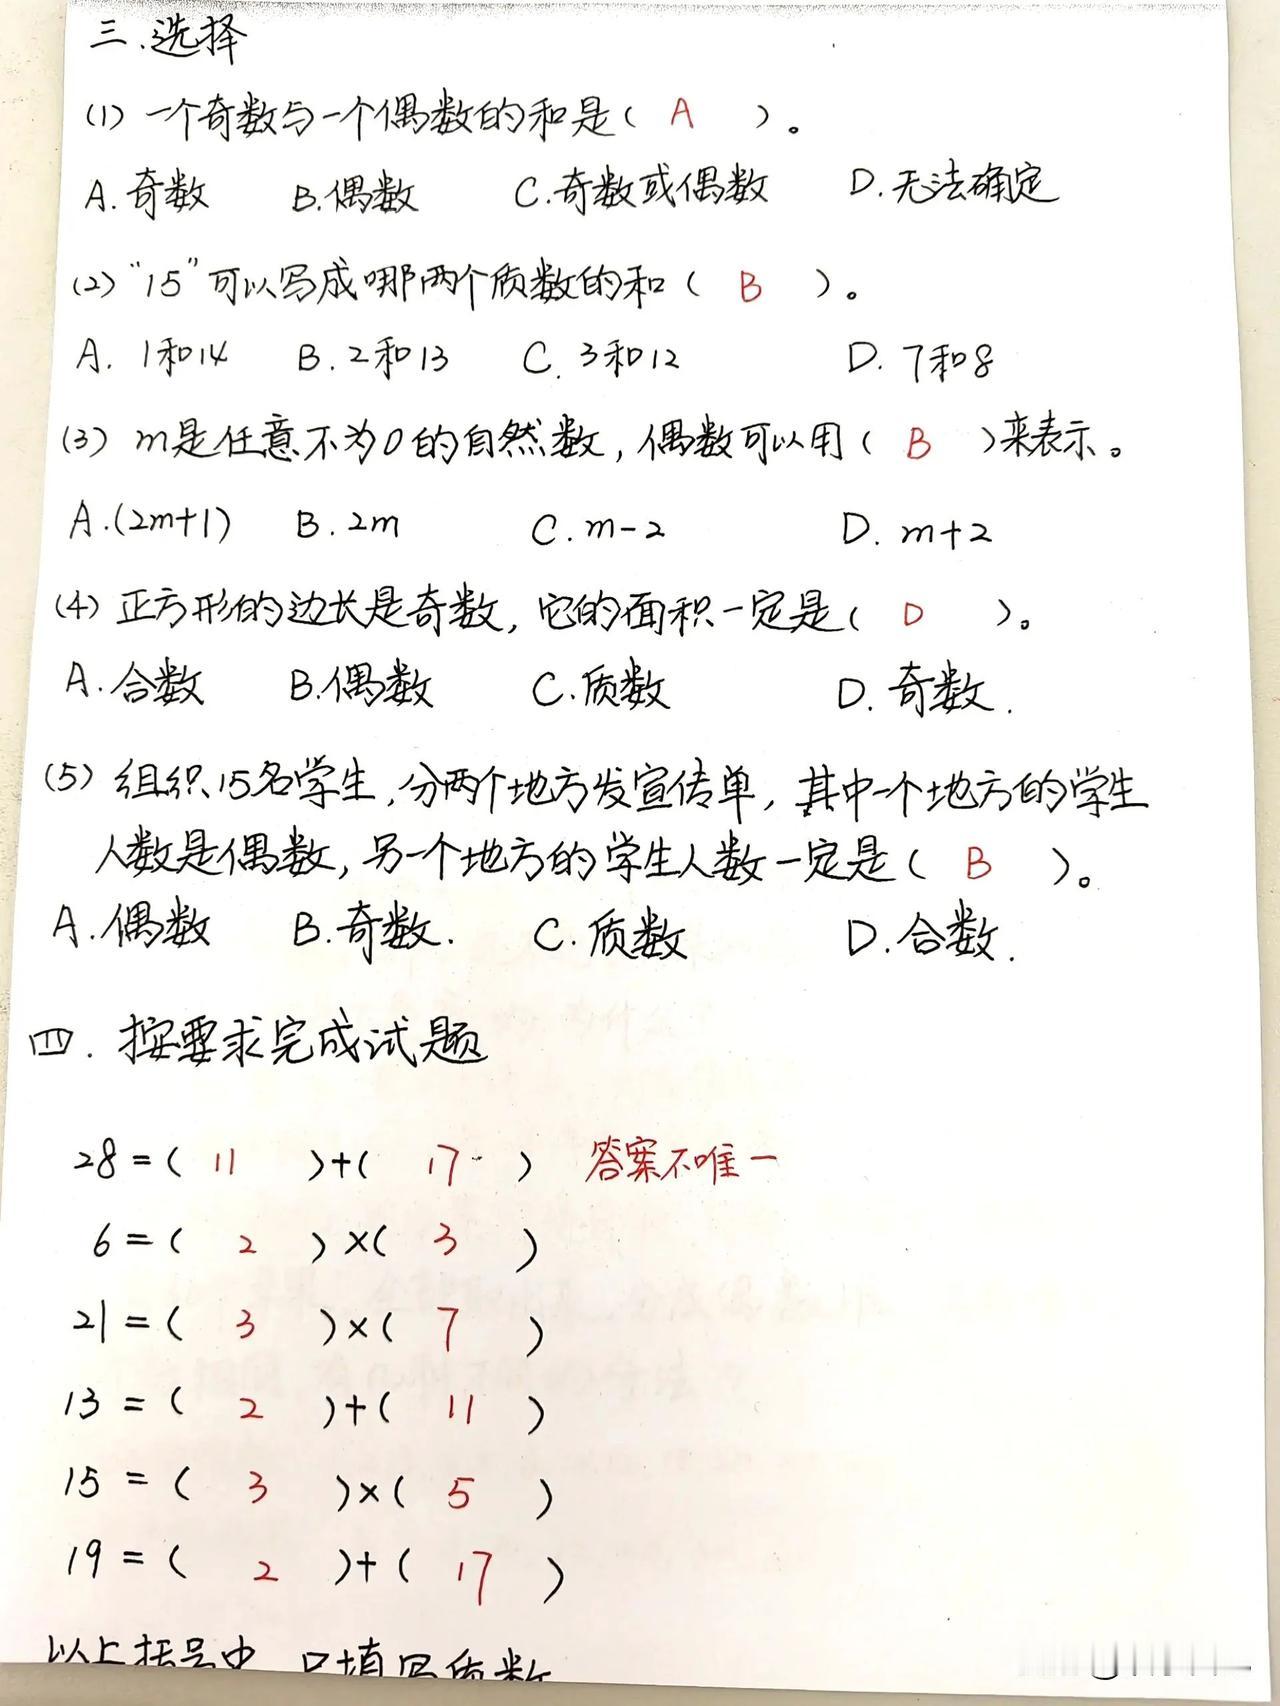 三.选择
(1) 一个奇数与一个偶数的和是( A )。
A.奇数 B.偶数 C.奇数或偶数 D.无法确定
(2)“15”可以写成哪两个质数的和( B )。
A. 1和14 B. 2和13 C. 3和12 D. 7和8
(3) m是任意不为0的自然数,偶数可以用( B )来表示。
A.(2m+1) B. 2m C. m-2 D. m+2
(4) 正方形的边长是奇数,它的面积一定是( D )。
A.合数 B.偶数 C.质数 D. 奇数.
(5) 组织15名学生,分两个地方发宣传单,其中一个地方的学生
人数是偶数,另一个地方的学生人数一定是( B )。
A.偶数 B.奇数. C.质数 D.合数.
四. 按要求完成试题
28=( 11 )+( 17 ) 答案不唯一
6=( 2 )×( 3 )
21=( 3 )×( 7 )
13=( 2 )+( 11 )
15=( 3 )×( 5 )
19=( 2 )+( 17 )
以上括号中,只填写质数